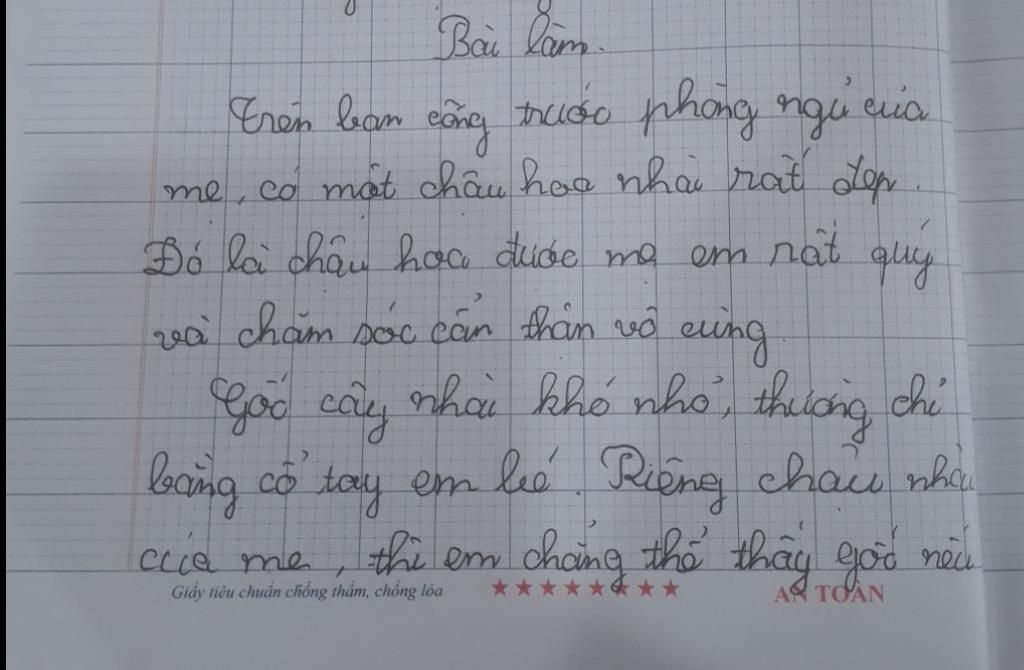 Bài làm.
Trên ban công trước phòng ngủ của
mẹ, có một chậu hoa nhài rất đẹp.
Đó là chậu hoa được mẹ em rất quý
và chăm sóc cẩn thận vô cùng
Gốc cây nhài khá nhỏ, thường chỉ
bằng cổ tay em bé. Riêng chậu nhài
của mẹ, thì em chẳng thể thấy gốc nếu
Giấy tiêu chuẩn chống thấm, chống lóa
AN TOÀN